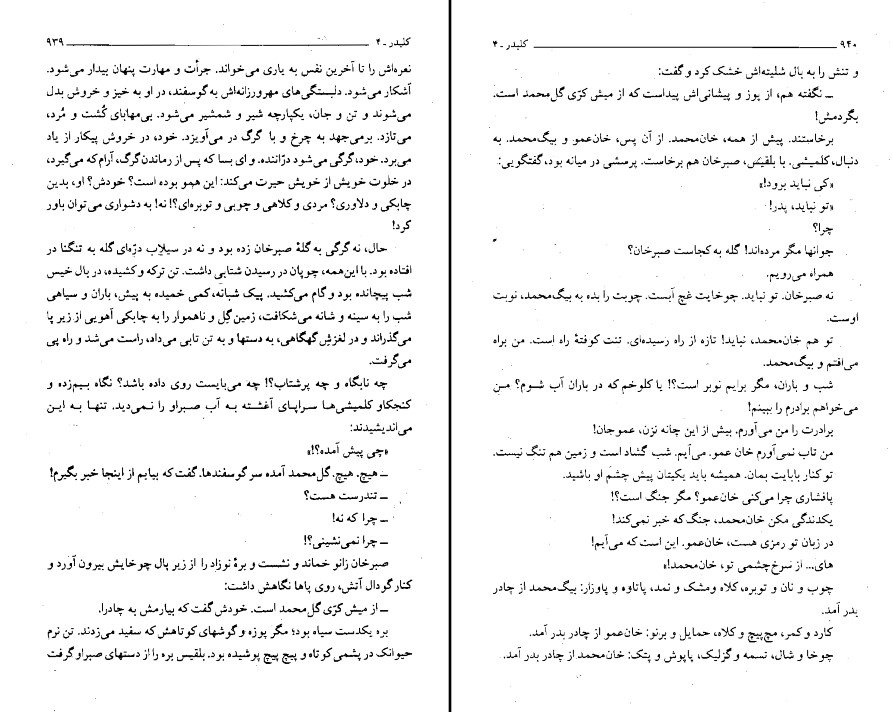 کلیدر ـ ۴ ۹۳۹
نعره‌اش را تا آخرین نفس به یاری می‌خواند. جرأت و مهارت پنهان بیدار می‌شود.
آشکار می‌شود. دلبستگی‌های مهرورزانه‌اش به گوسفند، در او به خیز و خروش بدل
می‌شوند و تن و جان، یکپارچه شیر و شمشیر می‌شود. بی‌مهابای کُشت و مُرد،
می‌تازد. برمی‌جهد به چرخ و با گرگ در می‌آویزد. خود، در خروش پیکار از یاد
می‌برد. خود، گرگی می‌شود درّاننده. و ای بسا که پس از رماندن گرگ، آرام که می‌گیرد،
در خلوت خویش از خویش حیرت می‌کند: این همو بوده است؟ خودش؟ او، بدین
چابکی و دلاوری؟ مردی و کلاهی و چوبی و توبره‌ای؟! نه! به دشواری می‌توان باور
کرد!
حال، نه گرگی به گلهٔ صبرخان زده بود و نه در سیلاب درّه‌ای گله به تنگنا در
افتاده بود. با این‌همه، چوپان در رسیدن شتابی داشت. تن ترکه و کشیده، در بال خیس
شب پیچانده بود و گام می‌کشید. پیک شبانه، کمی خمیده به پیش، باران و سیاهی
شب را به سینه و شانه می‌شکافت، زمین گِل و ناهموار را به چابکی آهویی از زیر پا
می‌گذراند و در لغزش گهگاهی، به دستها و به تن تابی می‌داد، راست می‌شد و راه پی
می‌گرفت.
چه نابگاه و چه پرشتاب؟! چه می‌بایست روی داده باشد؟ نگاه بیم‌زده و
کنجکاو کلمیشی‌ها سراپای آغشته به آب صبراو را نمی‌دید. تنها به این
می‌اندیشیدند:
«چی پیش آمده؟!»
ــ هیچ. هیچ. گل‌محمد آمده سر گوسفندها. گفت که بیایم از اینجا خبر بگیرم!
ــ تندرست هست؟
ــ چرا که نه!
ــ چرا نمی‌نشینی؟!
صبرخان زانو خماند و نشست و برهٔ نوزاد را از زیر بال چوخایش بیرون آورد و
کنار گودال آتش، روی پاها نگاهش داشت:
ــ از میش کرّی گل‌محمد است. خودش گفت که بیارمش به چادرا.
بره یکدست سیاه بود؛ مگر پوزه و گوشهای کوتاهش که سفید می‌زدند. تن نرم
حیوانک در پشمی کوتاه و پیچ پیچ پوشیده بود. بلقیس بره را از دستهای صبراو گرفت
۹۴۰ کلیدر ـ ۴
و تنش را به بال شلیته‌اش خشک کرد و گفت:
ــ نگفته هم، از پوز و پیشانی‌اش پیداست که از میش کرّی گل‌محمد است.
بگردمش!
برخاستند. پیش از همه، خان‌محمد. از آن پس، خان‌عمو و بیگ‌محمد. به
دنبال، کلمیشی. با بلقیس، صبرخان هم برخاست. پرسشی در میانه بود، گفتگویی:
«کی نباید برود!»
«تو نباید، پدر!
چرا؟
جوانها مگر مرده‌اند! گله به کجاست صبرخان؟
همراه می‌رویم.
نه صبرخان. تو نباید. چوخایت غچ آبست. چوبت را بده به بیگ‌محمد، نوبت
اوست.
تو هم خان‌محمد، نباید! تازه از راه رسیده‌ای. تنت کوفتهٔ راه است. من براه
می‌افتم و بیگ‌محمد.
شب و باران، مگر برایم نوبر است؟! یا کلوخم که در باران آب شوم؟ من
می‌خواهم برادرم را ببینم!
برادرت را من می‌آورم. بیش از این چانه نزن، عموجان!
من تاب نمی‌آورم خان عمو. می‌آیم. شب گشاد است و زمین هم تنگ نیست.
تو کنار بابایت بمان. همیشه باید یکیتان پیش چشم او باشید.
پافشاری چرا می‌کنی خان‌عمو؟ مگر جنگ است؟!
یکدندگی مکن خان‌محمد، جنگ که خبر نمی‌کند!
در زبان تو رمزی هست، خان‌عمو. این است که می‌آیم!
های... از سرخ‌چشمی تو، خان‌محمد!»
چوب و نان و توبره، کلاه ومشک و نمد، پاتاوه و پاوزار: بیگ‌محمد از چادر
بدر آمد.
کارد و کمر، مچ‌پیچ و کلاه، حمایل و برنو: خان‌عمو از چادر بدر آمد.
چوخا و شال، تسمه و گزلیک، پاپوش و پتک: خان‌محمد از چادر بدر آمد.